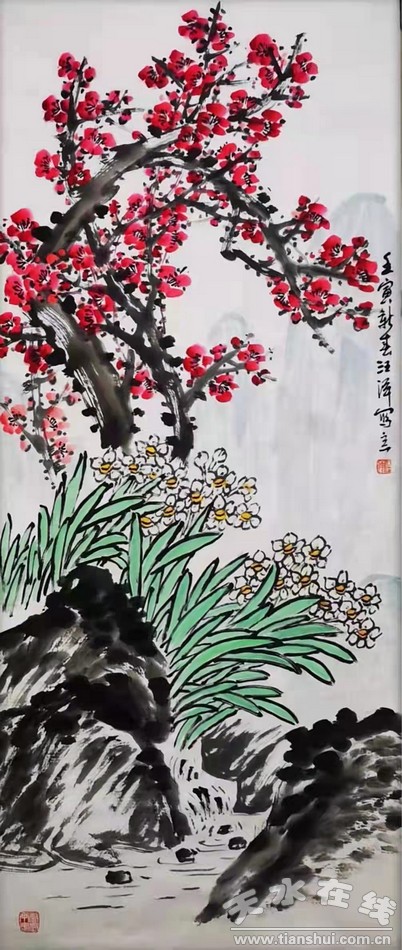 壬寅新春汪泽写意
天水在线
www.tianshui.com.cn